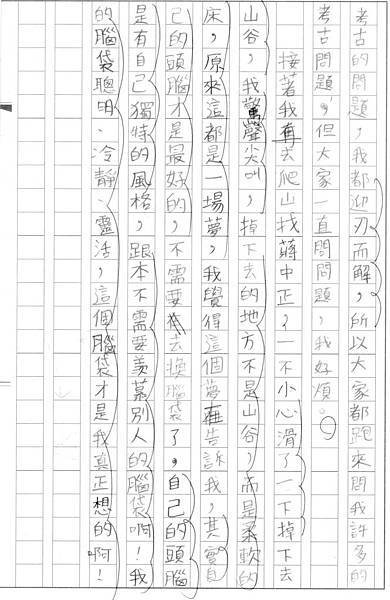 考古的問題,我都迎刃而解,所以大家都跑來問我許多的
考古問題,但大家一直問問題,我好煩。
接著我再去爬山找蔣中正,一不小心滑了一下掉下去
山谷,我驚聲尖叫,掉下去的地方不是山谷,而是柔軟的
床,原來這都是一場夢,我覺得這個夢在告訴我,其實自
己的頭腦才是最好的,不需要去換腦袋了,自己的頭腦
是有自己獨特的風格,跟本不需要羨慕別人的腦袋啊!我
的腦袋聰明、冷靜、靈活,這個腦袋才是我真正想的啊!